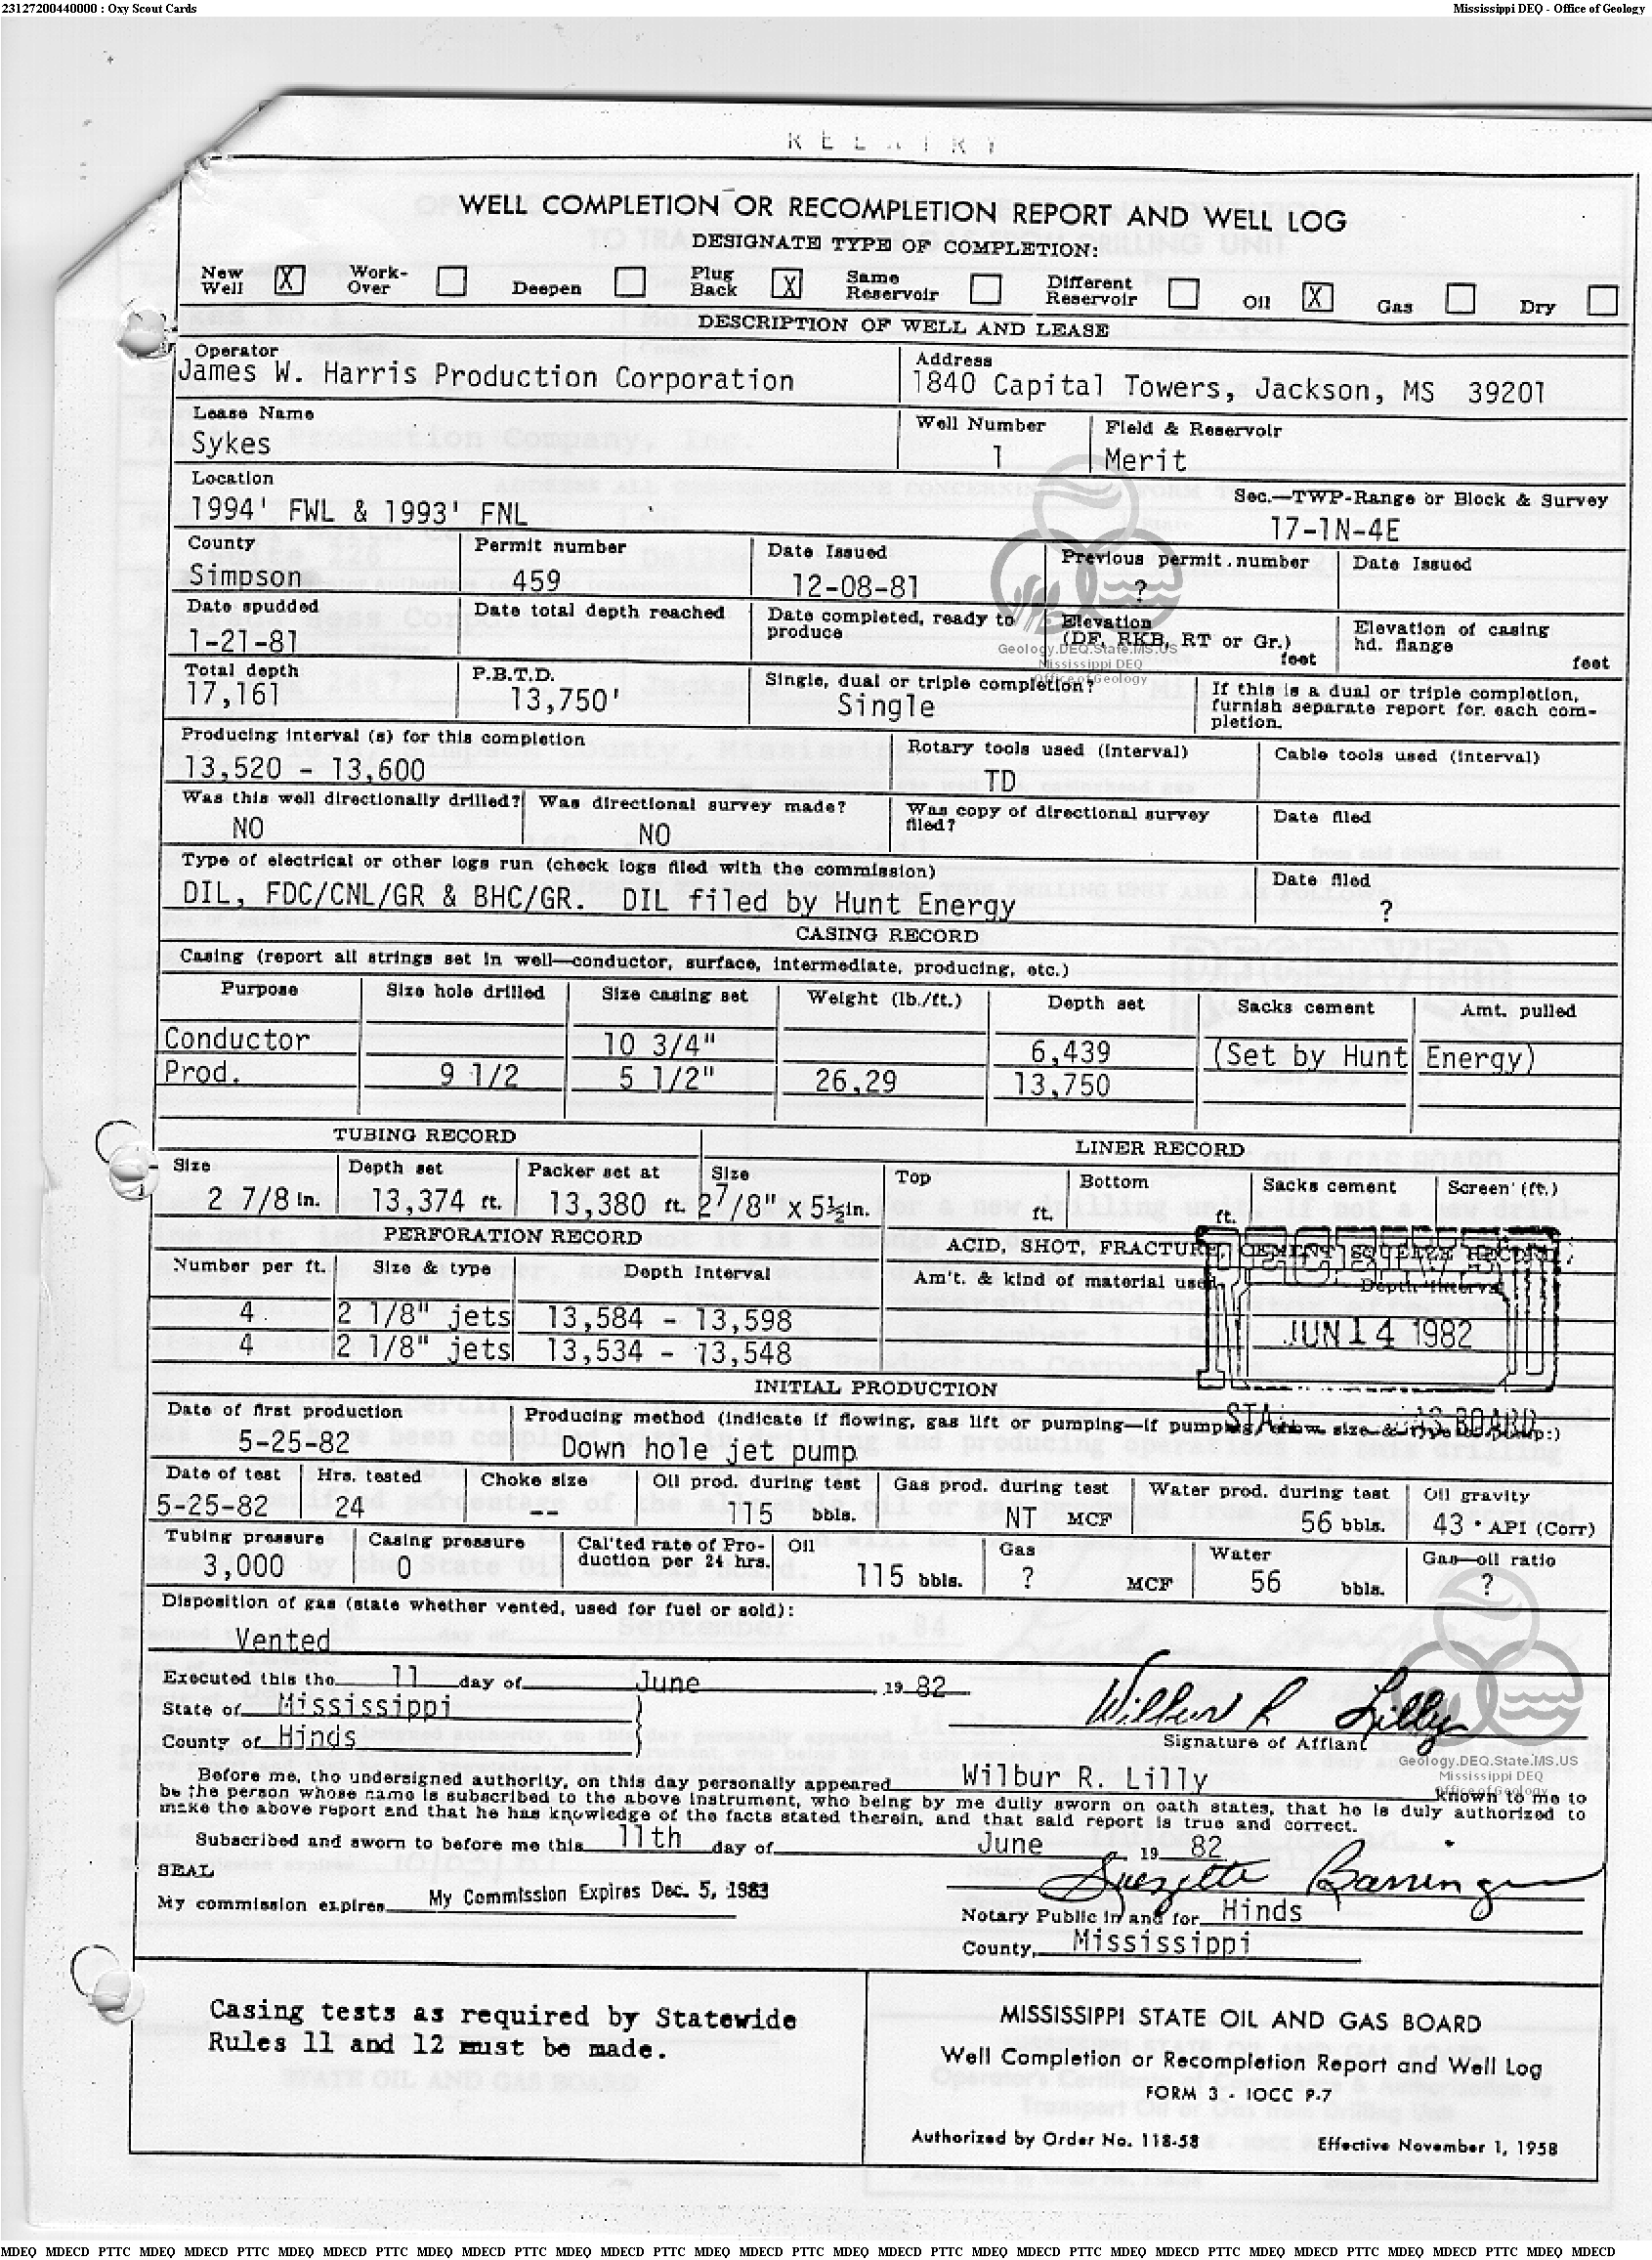 23127200440000 : Oxy Scout Cards
Mississippi DEQ - Office of Geology
WELL COMPLETION OR RECOMPLETION REPORT AND WELL LOG
DESIGNATE TYPE OF COMPLETION:
New Well [X] Work-Over [ ] Deepen [ ] Plug Back [X] Same Reservoir [ ] Different Reservoir [ ] Oil [X] Gas [ ] Dry [ ]
DESCRIPTION OF WELL AND LEASE
Operator Address
James W. Harris Production Corporation 1840 Capital Towers, Jackson, MS 39201
Lease Name Well Number Field & Reservoir
Sykes 1 Merit
Location Sec.—TWP-Range or Block & Survey
1994' FWL & 1993' FNL 17-1N-4E
County Permit number Date Issued Previous permit number Date Issued
Simpson 459 12-08-81 ?
Date spudded Date total depth reached Date completed, ready to produce Elevation (DF, RKB, RT or Gr.) feet Elevation of casing hd. flange feet
1-21-81
Geology.DEQ.State.MS.US
Mississippi DEQ
Office of Geology
Total depth P.B.T.D. Single, dual or triple completion? If this is a dual or triple completion, furnish separate report for each completion.
17,161 13,750' Single
Producing interval (s) for this completion Rotary tools used (interval) Cable tools used (interval)
13,520 - 13,600 TD
Was this well directionally drilled? Was directional survey made? Was copy of directional survey filed? Date filed
NO NO
Type of electrical or other logs run (check logs filed with the commission) Date filed
DIL, FDC/CNL/GR & BHC/GR. DIL filed by Hunt Energy ?
CASING RECORD
Casing (report all strings set in well—conductor, surface, intermediate, producing, etc.)
Purpose Size hole drilled Size casing set Weight (lb./ft.) Depth set Sacks cement Amt. pulled
Conductor 10 3/4" 6,439 (Set by Hunt Energy)
Prod. 9 1/2 5 1/2" 26,29 13,750
TUBING RECORD LINER RECORD
Size Depth set Packer set at Size Top Bottom Sacks cement Screen (ft.)
2 7/8 in. 13,374 ft. 13,380 ft. 2 7/8" x 5½ in. ft. ft.
PERFORATION RECORD ACID, SHOT, FRACTURE, CEMENT SQUEEZE RECORD
Number per ft. Size & type Depth Interval Am't. & kind of material used Depth Interval
4 2 1/8" jets 13,584 - 13,598
4 2 1/8" jets 13,534 - 13,548
RECEIVED
JUN 14 1982
INITIAL PRODUCTION
Date of first production Producing method (indicate if flowing, gas lift or pumping—if pumping, show size & type of pump:)
5-25-82 Down hole jet pump
Date of test Hrs. tested Choke size Oil prod. during test Gas prod. during test Water prod. during test Oil gravity
5-25-82 24 -- 115 bbls. NT MCF 56 bbls. 43 ° API (Corr)
Tubing pressure Casing pressure Cal'ted rate of Production per 24 hrs. Oil Gas Water Gas—oil ratio
3,000 0 115 bbls. ? MCF 56 bbls. ?
Disposition of gas (state whether vented, used for fuel or sold):
Vented
Executed this the 11 day of June, 19 82
State of Mississippi
County of Hinds
Wilbur R Lilly
Signature of Affiant
Geology.DEQ.State.MS.US
Mississippi DEQ
Office of Geology
Before me, the undersigned authority, on this day personally appeared Wilbur R. Lilly known to me to
be the person whose name is subscribed to the above instrument, who being by me dully sworn on oath states, that he is duly authorized to
make the above report and that he has knowledge of the facts stated therein, and that said report is true and correct.
Subscribed and sworn to before me this 11th day of June, 19 82
SEAL
My commission expires My Commission Expires Dec. 5, 1983
Notary Public in and for Hinds
County, Mississippi
Casing tests as required by Statewide
Rules 11 and 12 must be made.
MISSISSIPPI STATE OIL AND GAS BOARD
Well Completion or Recompletion Report and Well Log
FORM 3 - IOCC P-7
Authorized by Order No. 118-58 Effective November 1, 1958
MDEQ MDECD PTTC MDEQ MDECD PTTC MDEQ MDECD PTTC MDEQ MDECD PTTC MDEQ MDECD PTTC MDEQ MDECD PTTC MDEQ MDECD PTTC MDEQ MDECD PTTC MDEQ MDECD PTTC MDEQ MDECD PTTC MDEQ MDECD PTTC MDEQ MDECD